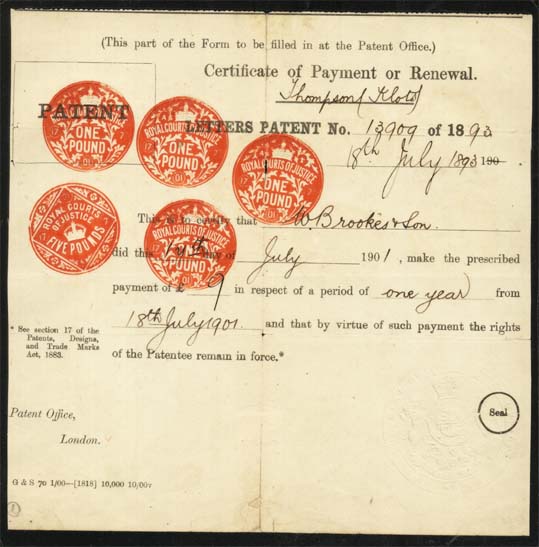 (This part of the Form to be filled in at the Patent Office.)
Certificate of Payment or Renewal.
Thompson (Klotz)
PATENT
LETTERS PATENT No. 13909 of 1893
18th July 1893 190
ONE POUND
17 01
ROYAL COURTS OF JUSTICE
ONE POUND
17 01
ROYAL COURTS OF JUSTICE
ONE POUND
01
ROYAL COURTS OF JUSTICE
FIVE POUNDS
ROYAL COURTS OF JUSTICE
POUND
01
This is to certify that W Brookes & Son.
did this day of July 1901, make the prescribed
payment of £ 9 in respect of a period of one year from
18th July 1901. and that by virtue of such payment the rights
of the Patentee remain in force.*
* See section 17 of the
Patents, Designs,
and Trade Marks
Act, 1883.
Seal
Patent Office,
London.
G & S 70 1/00—[1818] 10,000 10/00